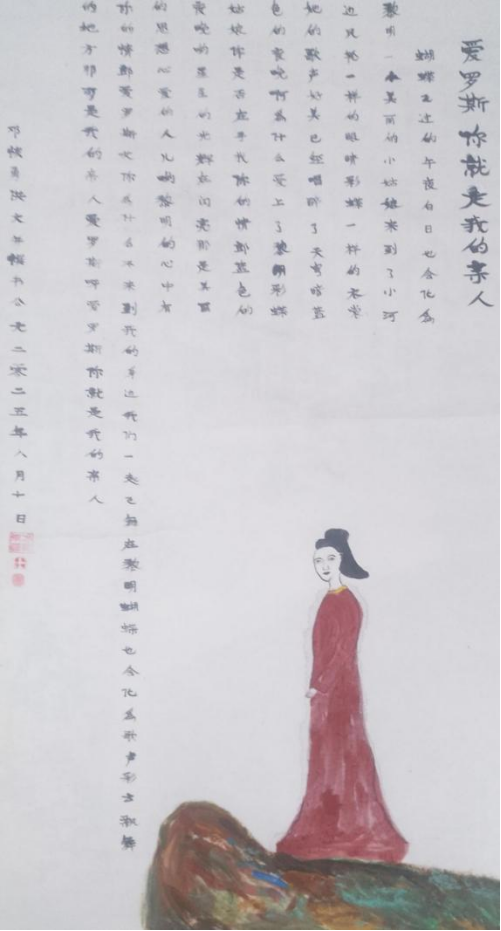 爱罗斯你就是我的亲人
蝴蝶飞过的午夜白日也会化为
黎明一个美丽的小姑娘来到了小河
边月光一样的眼睛彩蝶一样的衣裳
她的歌声好美已经唱醉了天穹暗蓝
色的夜晚啊为什么爱上了黎明彩蝶
姑娘你是否在寻找你的情郎蓝色的
夜晚啊星星的光辉在闪亮那是美丽
的思想心爱的人儿啊黎明的心中有
你的情郎爱罗斯是你为什么不来到我的身边我们一起飞翔在黎明蝴蝶也会化为歌声彩云飘舞
的地方那可是我的亲人爱罗斯呀爱罗斯你就是我的亲人
文并书公元二零二五年八月十日